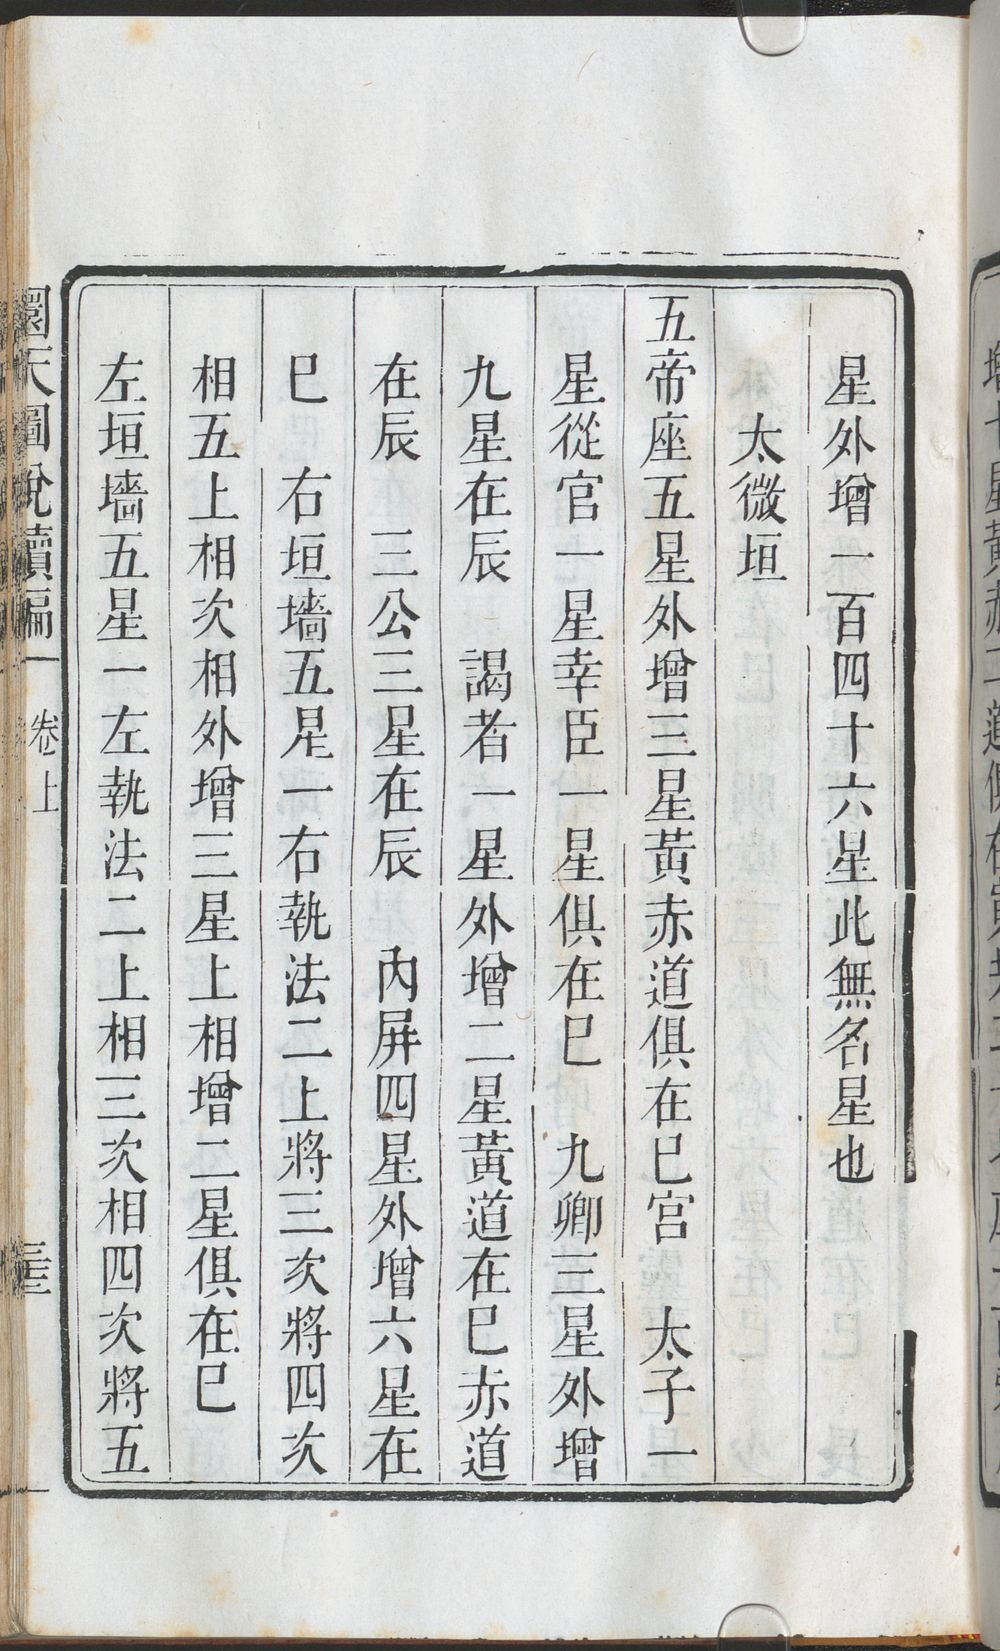 星外增一百四十六星此無名星也
太微垣
五帝座五星外增三星黃赤道俱在巳宮　太子一
星從官一星幸臣一星俱在巳　九卿三星外增
九星在辰　謁者一星外增二星黃道在巳赤道
在辰　三公三星在辰　內屏四星外增六星在
巳　右垣墻五星一右執法二上將三次將四次
相五上相次相外增三星上相增二星俱在巳
左垣墻五星一左執法二上相三次相四次將五
圜天圖說續編　卷上